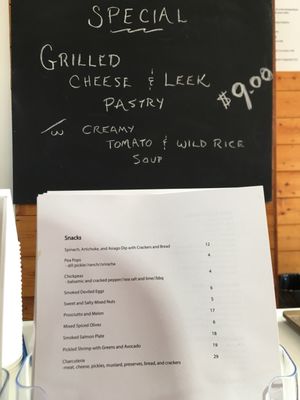 SPECIAL
GRILLED
CHEESE & LEEK
PASTRY
$9.00
w/ CREAMY
TOMATO & WILD RICE
SOUP
Snacks
Spinach, Artichoke, and Asiago Dip with Crackers and Bread 12
Pea Pops 4
- dill pickle/ranch/sriracha
Chickpeas 4
- balsamic and cracked pepper/sea salt and lime/bbq
Smoked Deviled Eggs 6
Sweet and Salty Mixed Nuts 5
Prosciutto and Melon 17
Mixed Spiced Olives 6
Smoked Salmon Plate 18
Pickled Shrimp with Greens and Avocado 19
Charcuterie 29
-meat, cheese, pickles, mustard, preserves, bread, and crackers